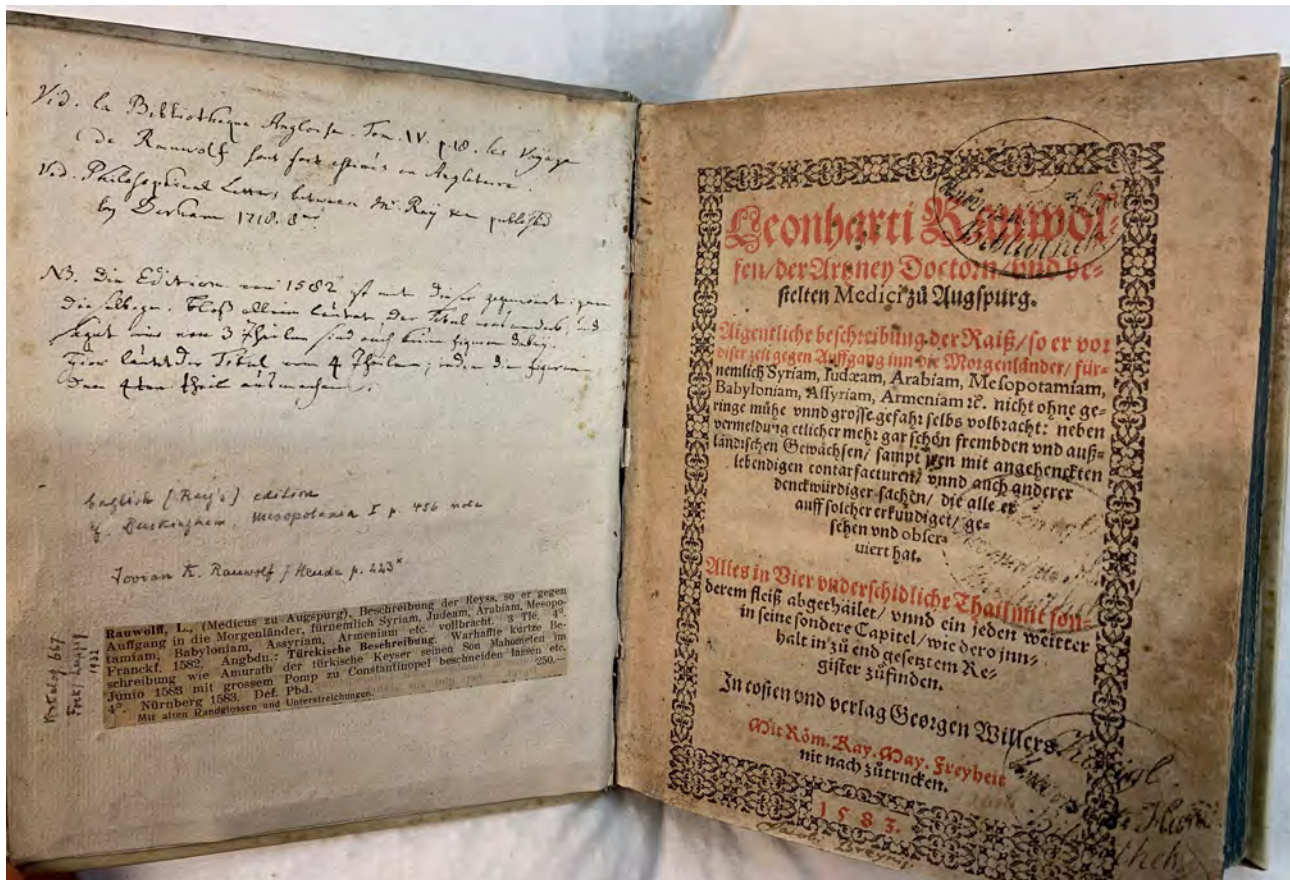 Vid. la Bibliotheque Angloise. Tom. IV. p. 18. les Voyage
de Rauwolf sont fort estimés en Angleterre.
Vid. Philosophical Letters between Mr. Ray published
by Derham 1718. 8
NB. Die Edition von 1582 ist mit dieser
dieselbige. bloß allein lautet der Titul anders, und
sagt nur von 3 Theilen sind auch keine figuren dabey.
Hier lautet der Titul von 4 Theilen; indem die figuren
den 4ten Theil ausmachen.
English (Ray's) edition
cf. Buckingham, Mesopotamia I p. 456 note
Jovian K. Rauwolf / Heude p. 223
Katalog 657
Fock, Leipzig
1932
Rauwolff, L., (Medicus zu Augspurg), Beschreibung der Reyss, so er gegen
Auffgang in die Morgenländer, fürnemlich Syriam, Judeam, Arabiam, Mesopo-
tamiam, Babyloniam, Assyriam, Armeniam etc. vollbracht. 3 Tle. 4°.
Franckf. 1582. Angbdn.: Türckische Beschreibung. Warhaffte kurtze Be-
schreibung wie Amurath der türkische Keyser seinen Son Mahometen im
Junio 1583 mit grossem Pomp zu Constantinopel beschneiden lassen etc.
4°. Nürnberg 1583. Def. Pbd. 250.—
Mit alten Randglossen und Unterstreichungen.
Leonharti Rauwol-
fen/ der Artzney Doctorn/ vnd be-
stelten Medici zů Augspurg.
Aigentliche beschreibung der Raiß/ so er vor
diser zeit gegen Auffgang inn die Morgenländer/ für-
nemlich Syriam, Iudæam, Arabiam, Mesopotamiam,
Babyloniam, Assyriam, Armeniam ꝛc. nicht ohne ge-
ringe mühe vnnd grosse gefahr selbs volbracht: neben
vermeldung etlicher mehr gar schön frembden vnd auß-
ländischen Gewächsen/ sampt jren mit angehenckten
lebendigen contarfacturen/ vnnd auch anderer
denckwürdiger sachen/ die alle er
auff solcher erkundiget/ ge-
sehen vnd obser-
uiert hat.
Alles in Vier vnderschidliche Thail mit son-
derem fleiß abgethailet/ vnnd ein jeden weitter
in seine sondere Capitel/ wie dero jnn-
halt in zů end gesetztem Re-
gister zůfinden.
In costen vnd verlag Georgen Willers.
Mit Röm. Kay. May. Freyheit
nit nach zůtrucken.
1583.